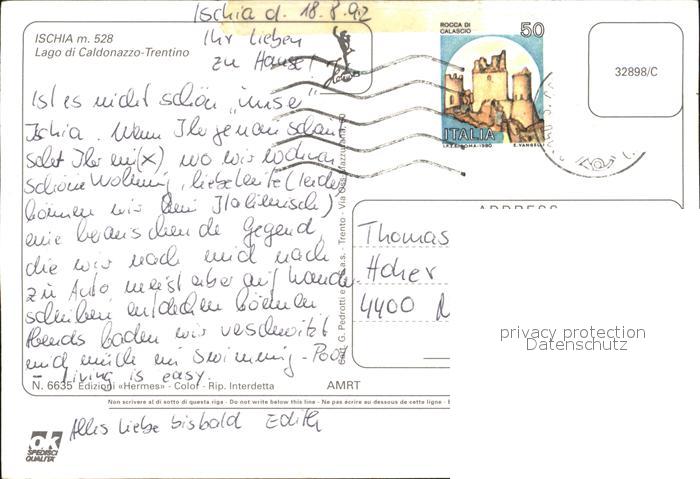 Ischia d. 18.8.92
ISCHIA m. 528
Lago di Caldonazzo-Trentino
Ihr lieben
zu Hause!
ROCCA DI
CALASCIO
50
ITALIA
I.P.Z.S. ROMA - 1980 E. VANGELLI
32898/C
Ist es nicht schön "unser"
Ischia. Wenn Ihr genau schaut
seht Ihr ein (x) wo wir wohnen
schöne Wohnung, liebe Leute (leider
können wir kein Italienisch)
eine berauschende Gegend,
die wir nach und nach
zu Auto meist aber auf
entdecken können
Abends baden wir verschwitzt
und müde im Swimming-Pool
- living is easy.
Alles liebe bisbald Edith
G. Pedrotti
s.a.s. - Trento - Via
ADDRESS
Thomas
Hoher
4400
privacy protection
Datenschutz
N. 6635 Edizioni «Hermes» - Color - Rip. Interdetta AMRT
Non scrivere al di sotto di questa riga - Do not write below this line - Ne pas ecrire au dessous de cette ligne -
ok
SPEDISCI
QUALITÀ